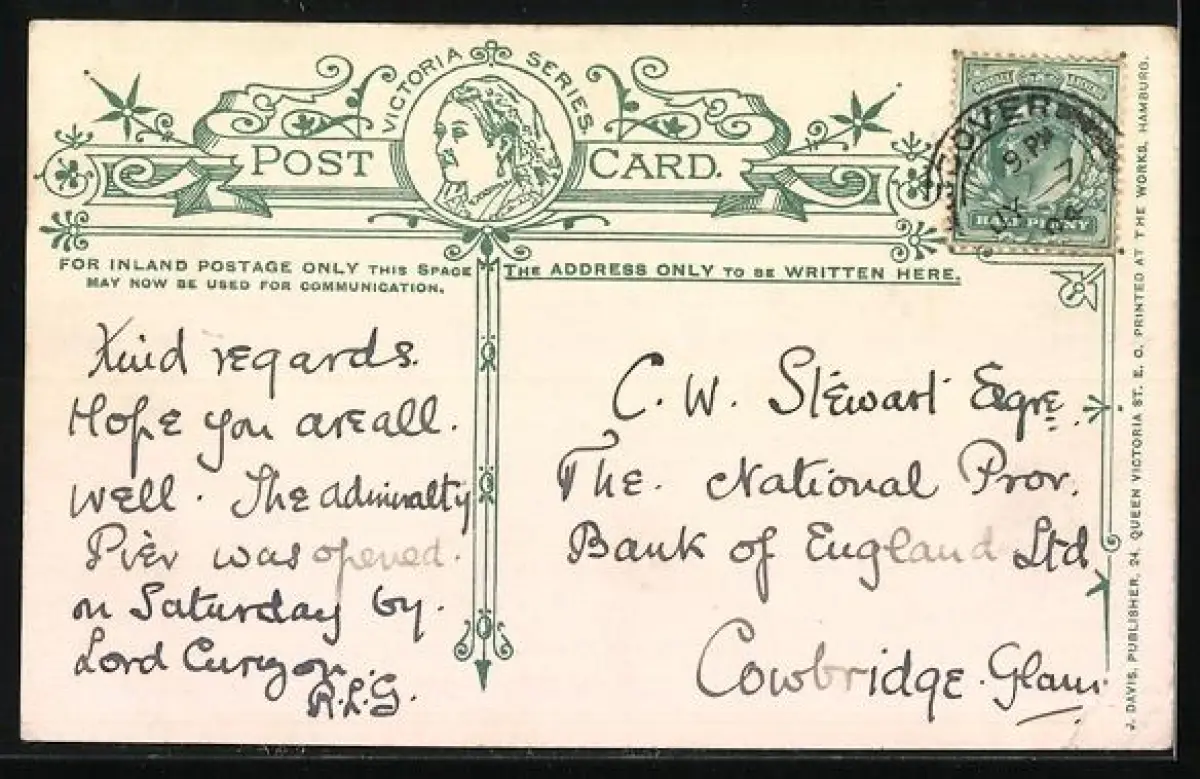 VICTORIA SERIES.
POST CARD.
FOR INLAND POSTAGE ONLY THIS SPACE
MAY NOW BE USED FOR COMMUNICATION.
THE ADDRESS ONLY TO BE WRITTEN HERE.
DOVER
9. PM
7
HALF PENNY
Kind regards.
Hope you are all.
well. The admiralty
Pier was opened.
on Saturday by.
Lord Curzon.
R.L.G.
C. W. Stewart Esqre.
The. National Prov.
Bank of England Ltd
Cowbridge. Glam.
J. DAVIS, PUBLISHER, 24, QUEEN VICTORIA ST. E. C. PRINTED AT THE WORKS, HAMBURG.